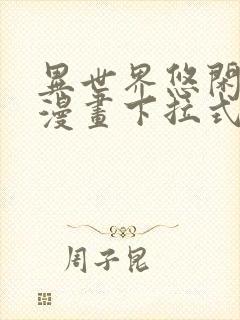 異世界悠閑
漫畫下拉式
周子昆